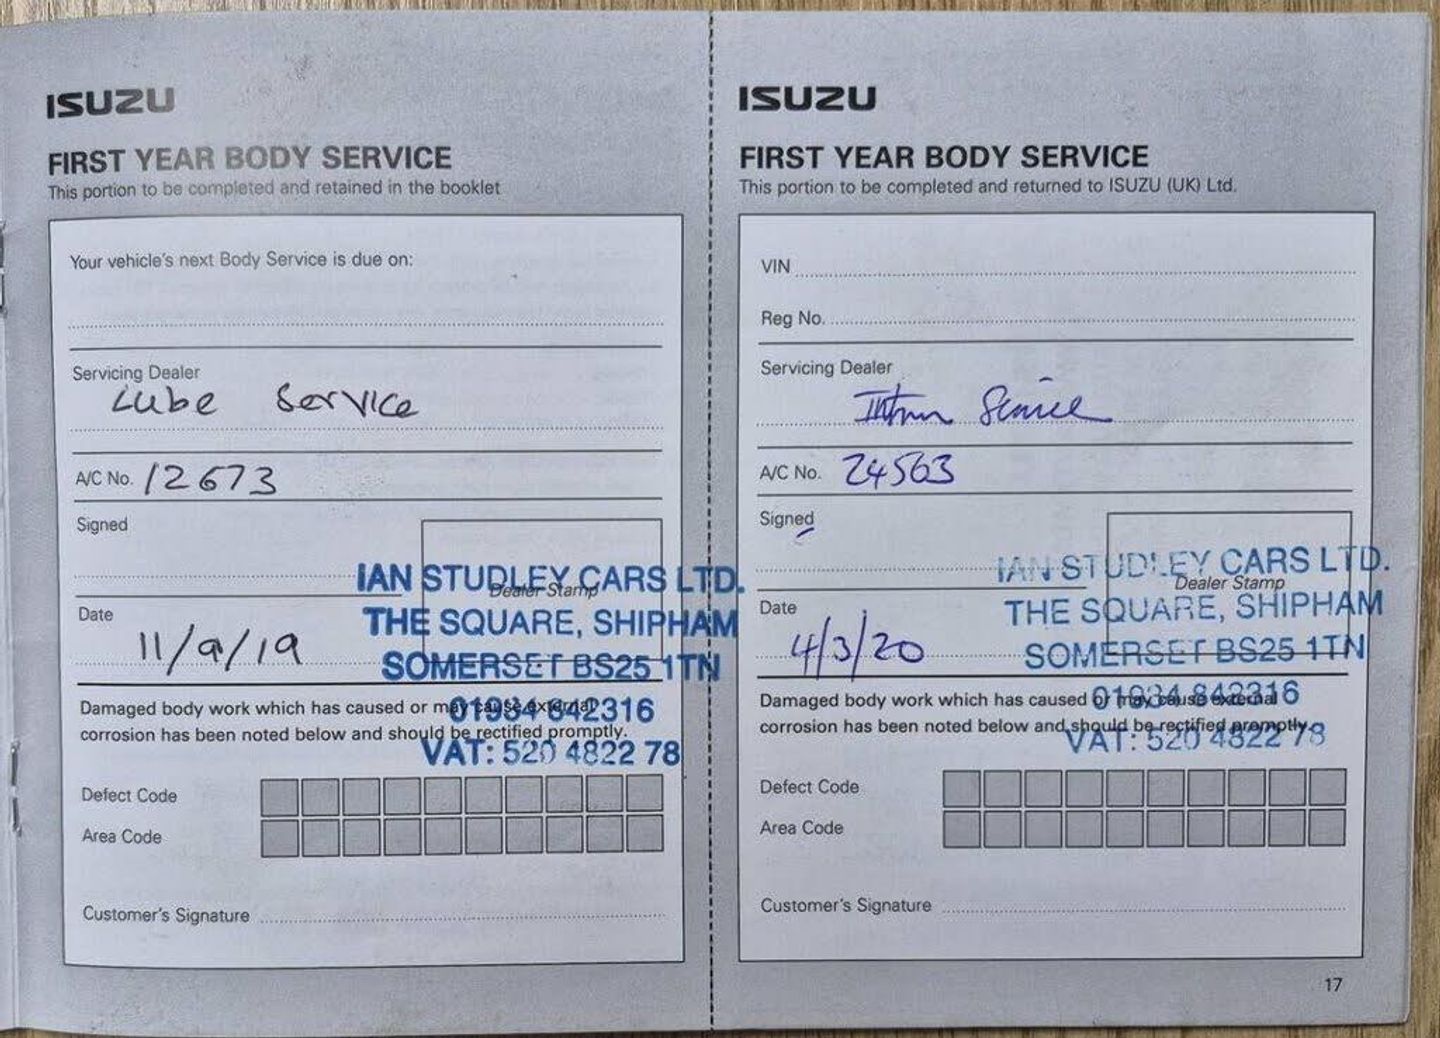 ISUZU
FIRST YEAR BODY SERVICE
This portion to be completed and retained in the booklet
Your vehicle's next Body Service is due on:
Servicing Dealer
Lube Service
A/C No. 12673
Signed
Dealer Stamp
IAN STUDLEY CARS LTD.
THE SQUARE, SHIPHAM
SOMERSET BS25 1TN
01934 842316
VAT: 520 4822 78
Date
11/9/19
Damaged body work which has caused or may cause external
corrosion has been noted below and should be rectified promptly.
Defect Code
Area Code
Customer's Signature
ISUZU
FIRST YEAR BODY SERVICE
This portion to be completed and returned to ISUZU (UK) Ltd.
VIN
Reg No.
Servicing Dealer
Service
A/C No. 24563
Signed
Dealer Stamp
IAN STUDLEY CARS LTD.
THE SQUARE, SHIPHAM
SOMERSET BS25 1TN
01934 842316
VAT: 520 4822 78
Date
4/3/20
Damaged body work which has caused or may cause external
corrosion has been noted below and should be rectified promptly.
Defect Code
Area Code
Customer's Signature
17